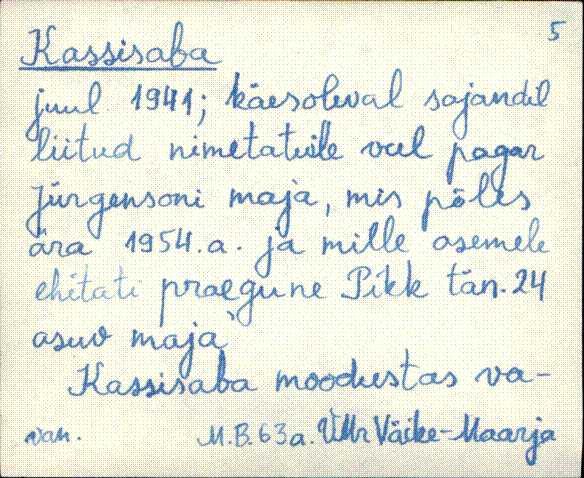 5
Kassisaba
juul 1941; käesoleval sajandil
liitud nimetatuile veel pagar
Jürgensoni maja, mis põles
ära 1954.a. ja mille asemele
ehitati praegune Pikk tän. 24
asuv maja
Kassisaba moodustas va-
van. M.B. 63a. VMr Väike-Maarja